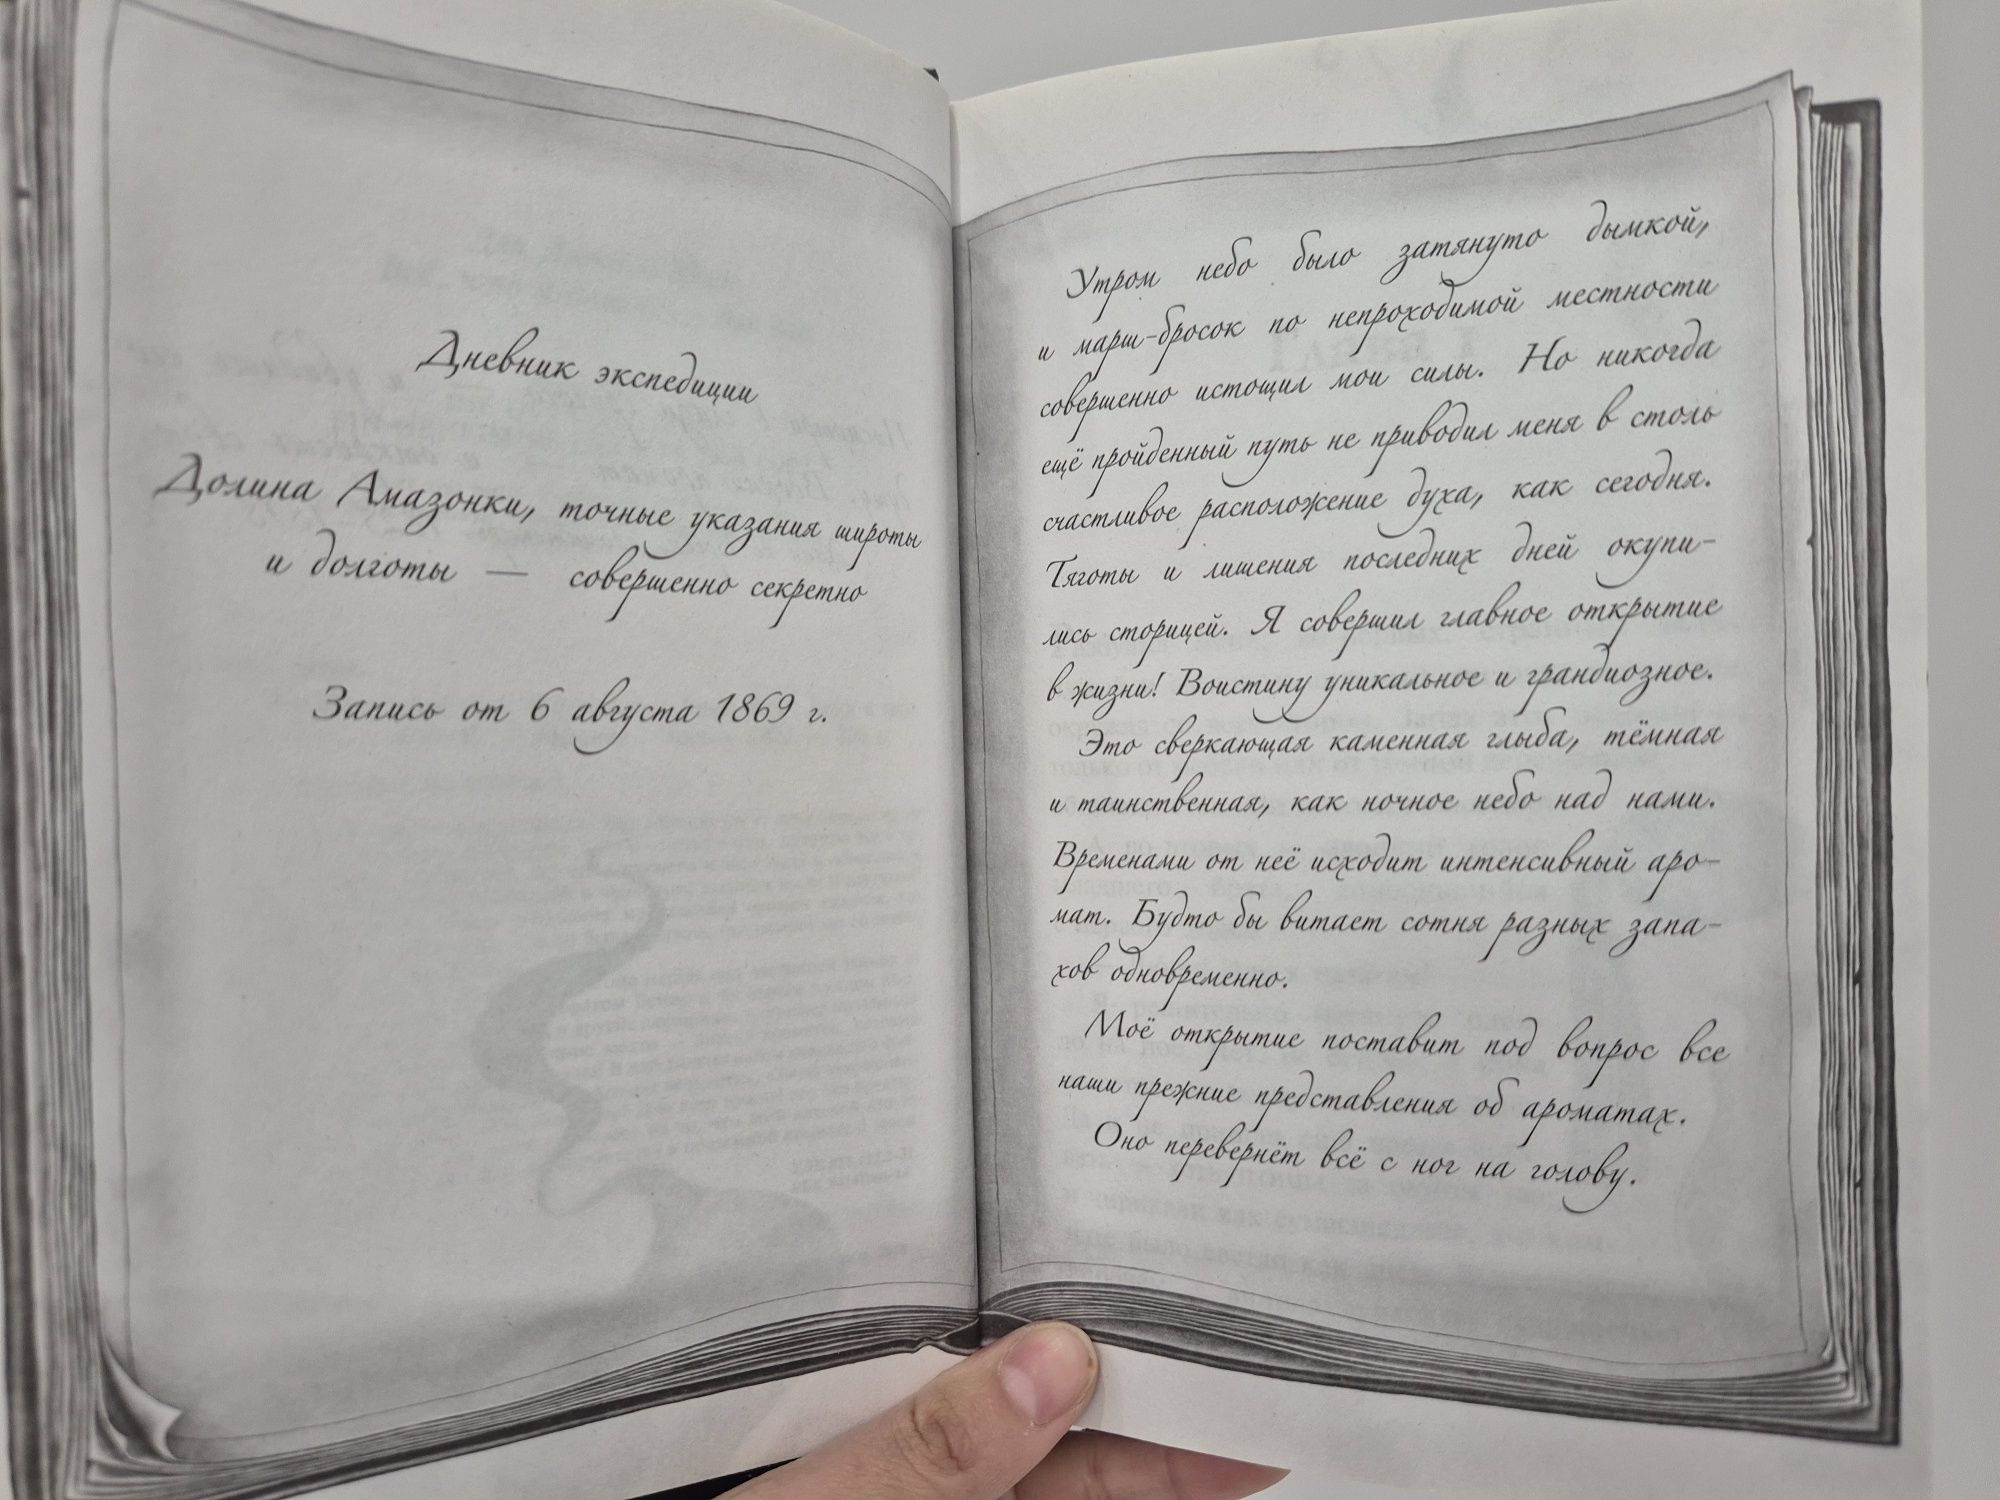 Дневник экспедиции
Долина Амазонки, точные указания широты
и долготы — совершенно секретно
Запись от 6 августа 1869 г.
Утром небо было затянуто дымкой,
и марш-бросок по непроходимой местности
совершенно истощил мои силы. Но никогда
ещё пройденный путь не приводил меня в столь
счастливое расположение духа, как сегодня.
Тяготы и лишения последних дней окупи-
лись сторицей. Я совершил главное открытие
в жизни! Воистину уникальное и грандиозное.
Это сверкающая каменная глыба, тёмная
и таинственная, как ночное небо над нами.
Временами от неё исходит интенсивный аро-
мат. Будто бы витает сотня разных запа-
хов одновременно.
Моё открытие поставит под вопрос все
наши прежние представления об ароматах.
Оно перевернёт всё с ног на голову.